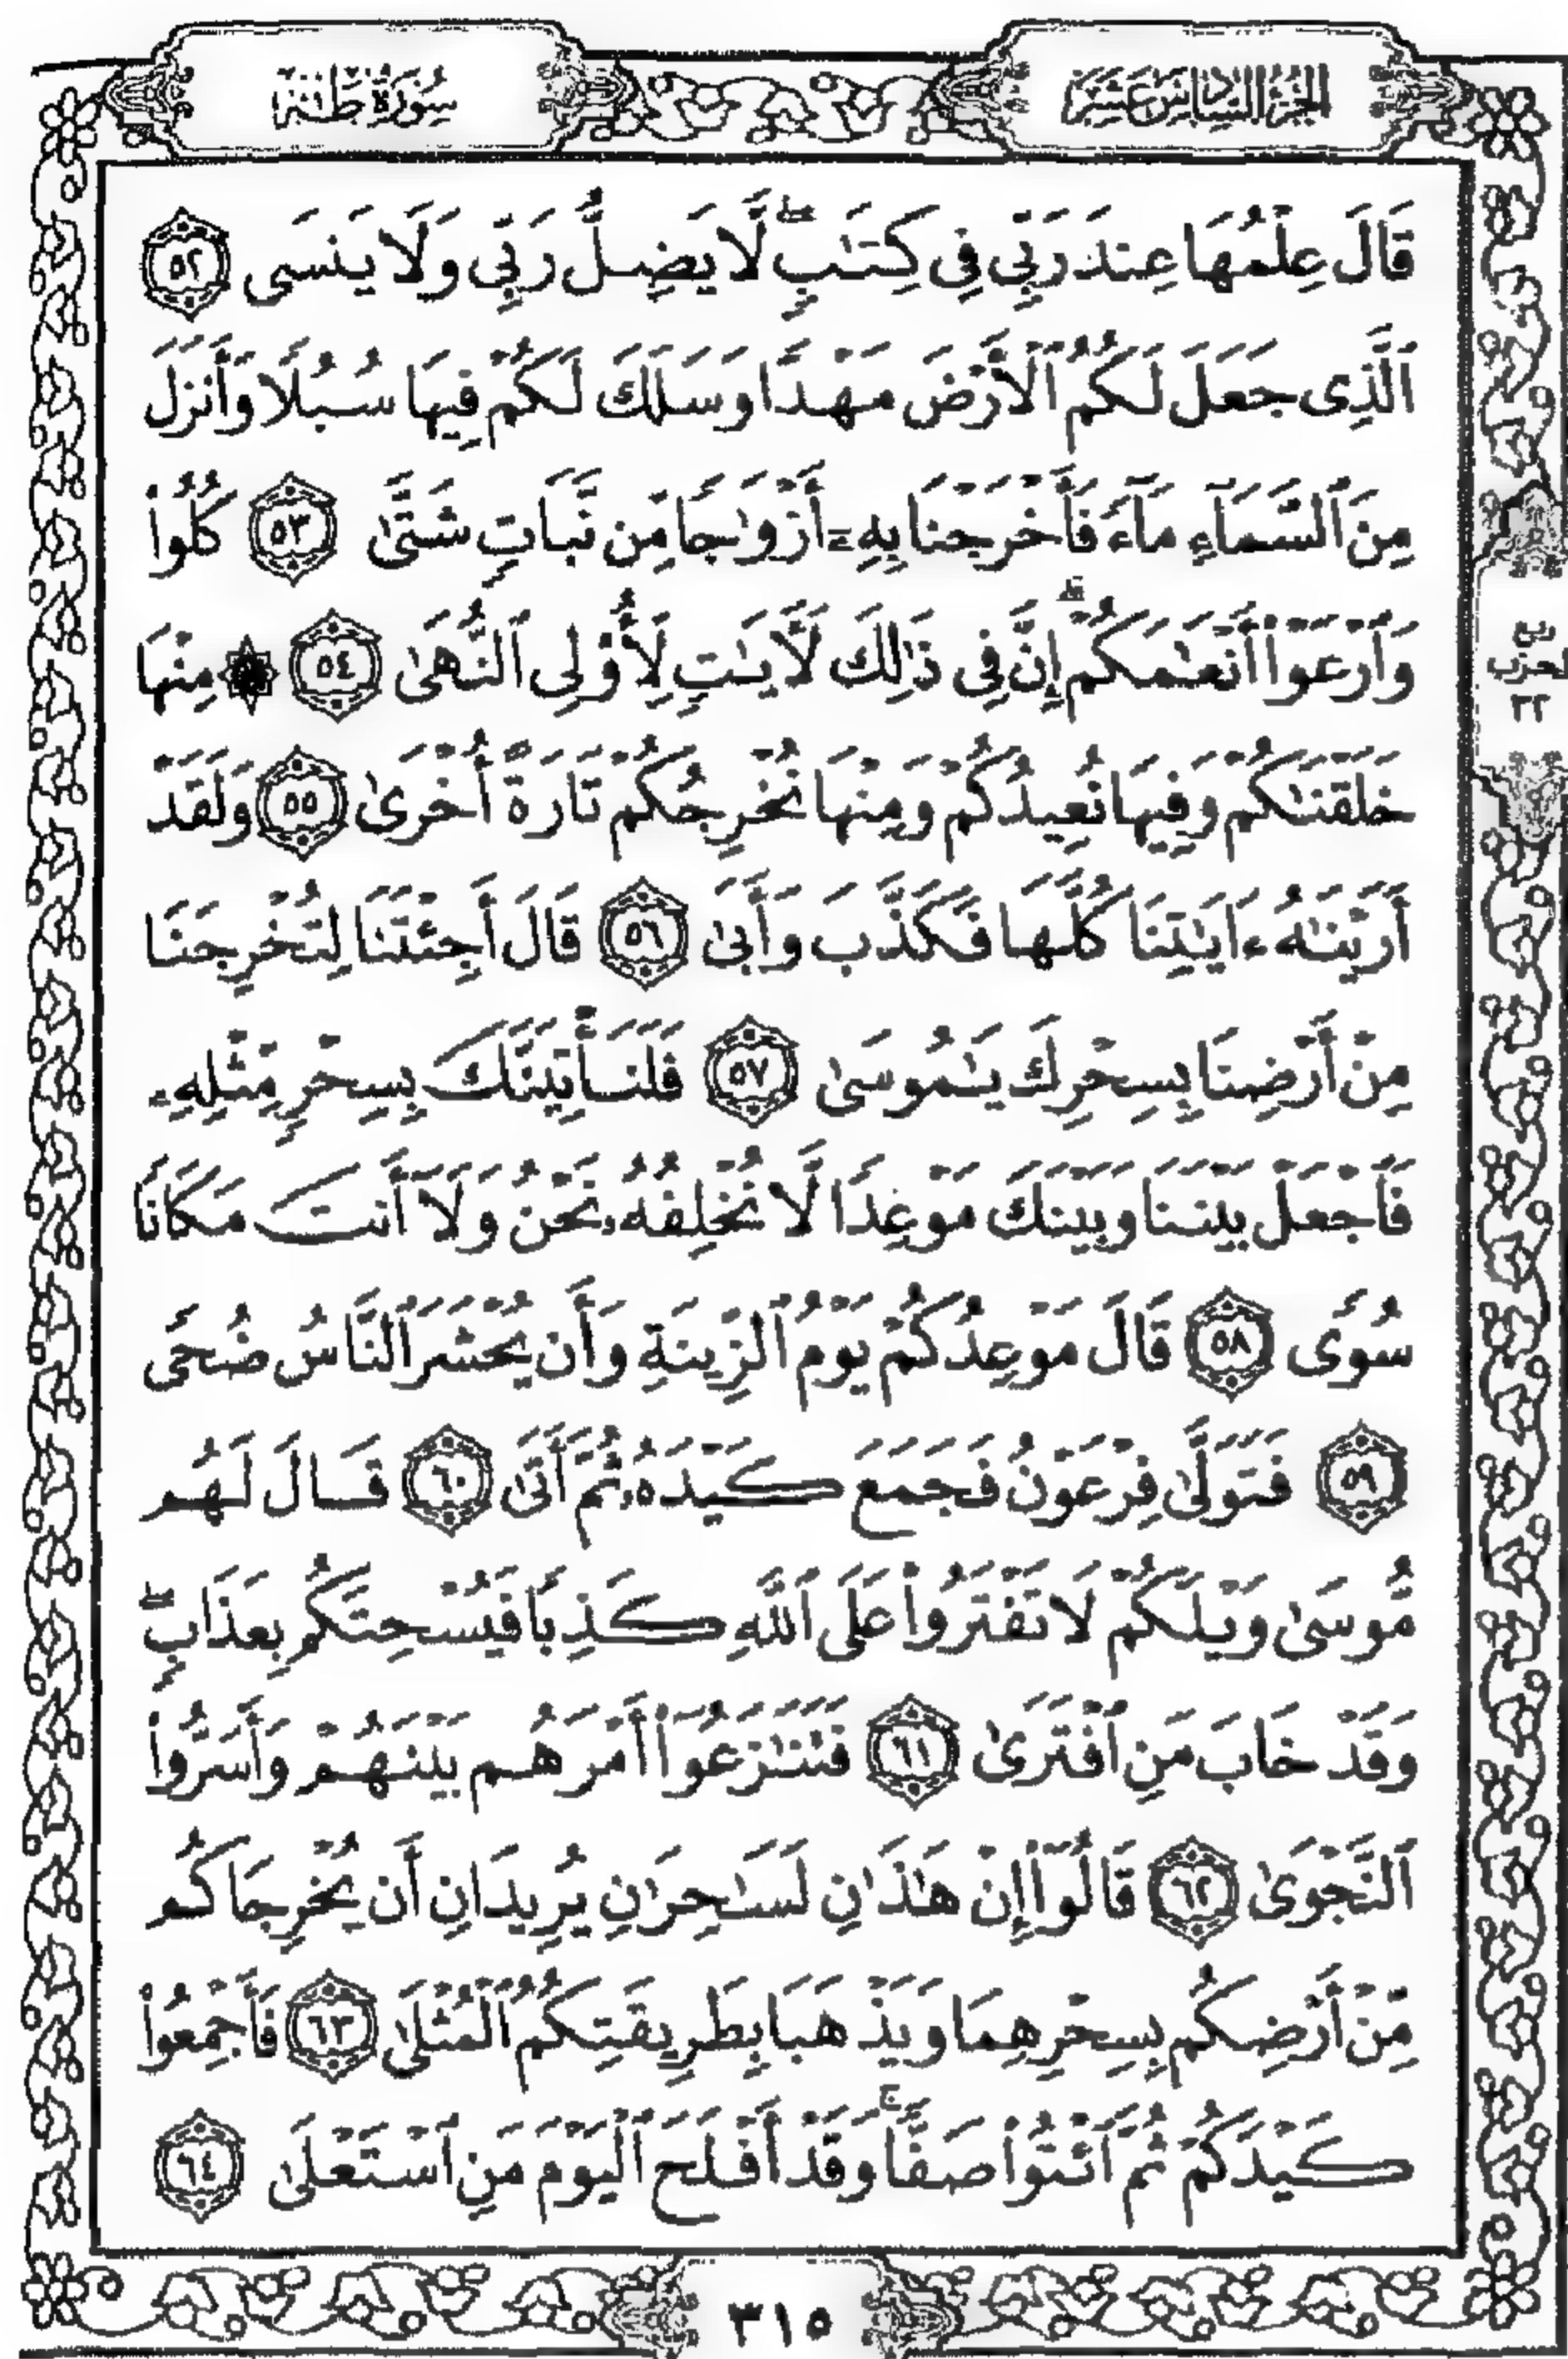 الجزء السادس عشر
سورة طه
قَالَ عِلْمُهَا عِندَ رَبِّى فِى كِتَٰبٍ ۖ لَّا يَضِلُّ رَبِّى وَلَا يَنسَى ٥٢
ٱلَّذِى جَعَلَ لَكُمُ ٱلْأَرْضَ مَهْدًا وَسَلَكَ لَكُمْ فِيهَا سُبُلًا وَأَنزَلَ
مِنَ ٱلسَّمَآءِ مَآءً فَأَخْرَجْنَا بِهِۦٓ أَزْوَٰجًا مِّن نَّبَاتٍ شَتَّىٰ ٥٣ كُلُوا۟
وَٱرْعَوْا۟ أَنْعَٰمَكُمْ ۗ إِنَّ فِى ذَٰلِكَ لَـَٔايَٰتٍ لِّأُو۟لِى ٱلنُّهَىٰ ٥٤ ۞ مِنْهَا
ربع
الحزب
٣٢
خَلَقْنَٰكُمْ وَفِيهَا نُعِيدُكُمْ وَمِنْهَا نُخْرِجُكُمْ تَارَةً أُخْرَىٰ ٥٥ وَلَقَدْ
أَرَيْنَٰهُ ءَايَٰتِنَا كُلَّهَا فَكَذَّبَ وَأَبَىٰ ٥٦ قَالَ أَجِئْتَنَا لِتُخْرِجَنَا
مِنْ أَرْضِنَا بِسِحْرِكَ يَٰمُوسَىٰ ٥٧ فَلَنَأْتِيَنَّكَ بِسِحْرٍ مِّثْلِهِۦ
فَٱجْعَلْ بَيْنَنَا وَبَيْنَكَ مَوْعِدًا لَّا نُخْلِفُهُۥ نَحْنُ وَلَآ أَنتَ مَكَانًا
سُوًى ٥٨ قَالَ مَوْعِدُكُمْ يَوْمُ ٱلزِّينَةِ وَأَن يُحْشَرَ ٱلنَّاسُ ضُحًى
٥٩ فَتَوَلَّىٰ فِرْعَوْنُ فَجَمَعَ كَيْدَهُۥ ثُمَّ أَتَىٰ ٦٠ قَالَ لَهُم
مُّوسَىٰ وَيْلَكُمْ لَا تَفْتَرُوا۟ عَلَى ٱللَّهِ كَذِبًا فَيُسْحِتَكُم بِعَذَابٍ ۖ
وَقَدْ خَابَ مَنِ ٱفْتَرَىٰ ٦١ فَتَنَٰزَعُوٓا۟ أَمْرَهُم بَيْنَهُمْ وَأَسَرُّوا۟
ٱلنَّجْوَىٰ ٦٢ قَالُوٓا۟ إِنْ هَٰذَٰنِ لَسَٰحِرَٰنِ يُرِيدَانِ أَن يُخْرِجَاكُم
مِّنْ أَرْضِكُم بِسِحْرِهِمَا وَيَذْهَبَا بِطَرِيقَتِكُمُ ٱلْمُثْلَىٰ ٦٣ فَأَجْمِعُوا۟
كَيْدَكُمْ ثُمَّ ٱئْتُوا۟ صَفًّا ۚ وَقَدْ أَفْلَحَ ٱلْيَوْمَ مَنِ ٱسْتَعْلَىٰ ٦٤
٣١٥